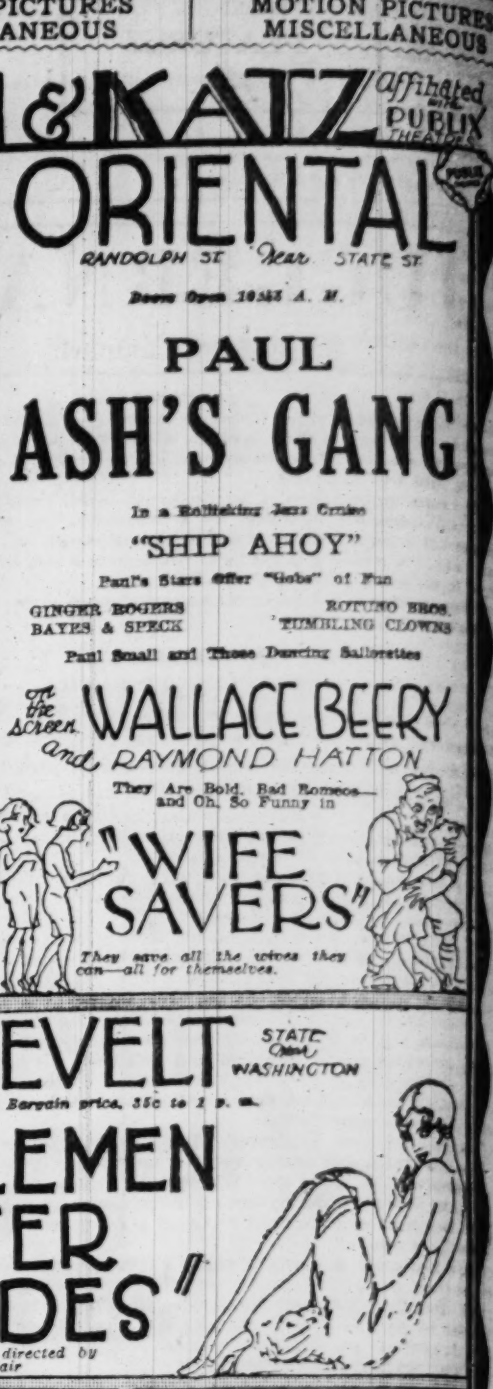 PICTURES
ANEOUS
MOTION PICTURES
MISCELLANEOUS
& KATZ
Affiliated
WITH
PUBLIX
THEATRES
ORIENTAL
PUBLIX
RANDOLPH ST. Near STATE ST.
Doors Open A. M.
PAUL
ASH'S GANG
In a Rollicking Jazz Cruise
"SHIP AHOY"
Paul's Stars Offer "Gobs" of Fun
GINGER ROGERS
BAYES & SPECK
ROTUNO BROS.
TUMBLING CLOWNS
Paul Small and Those Dancing Sailorettes
on
the
screen
WALLACE BEERY
and RAYMOND HATTON
They Are Bold, Bad Romeos—
and Oh, So Funny in
"WIFE
SAVERS"
They save all the wives they
can—all for themselves.
EVELT
STATE
Near
WASHINGTON
Bargain price, 35c to 1 p. m.
LEMEN
ER
DES"
directed by
air